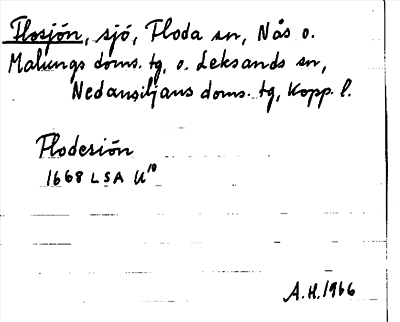 Flosjön, sjö, Floda sn, Nås o.
Malungs doms. tg, o. Leksands sn,
Nedansiljans doms. tg, Kopp. l.
Flodesiön
1668 LSA U¹⁰
A.H. 1966